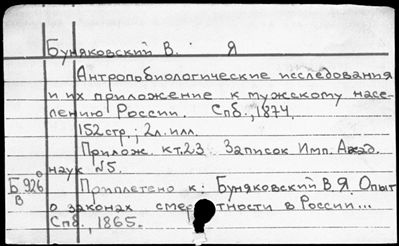 Буняковский В. Я
Антропобиологические исследования
и их приложение к мужскому насе-
лению России. Спб., 1874.
152 стр.; 2 л. илл.
Прилож. к т.23 Записок Имп. Акад.
наук №5.
Б 926 Приплетено к: Буняковский В.Я. Опыт
В о законах смертности в России...
Спб., 1865.